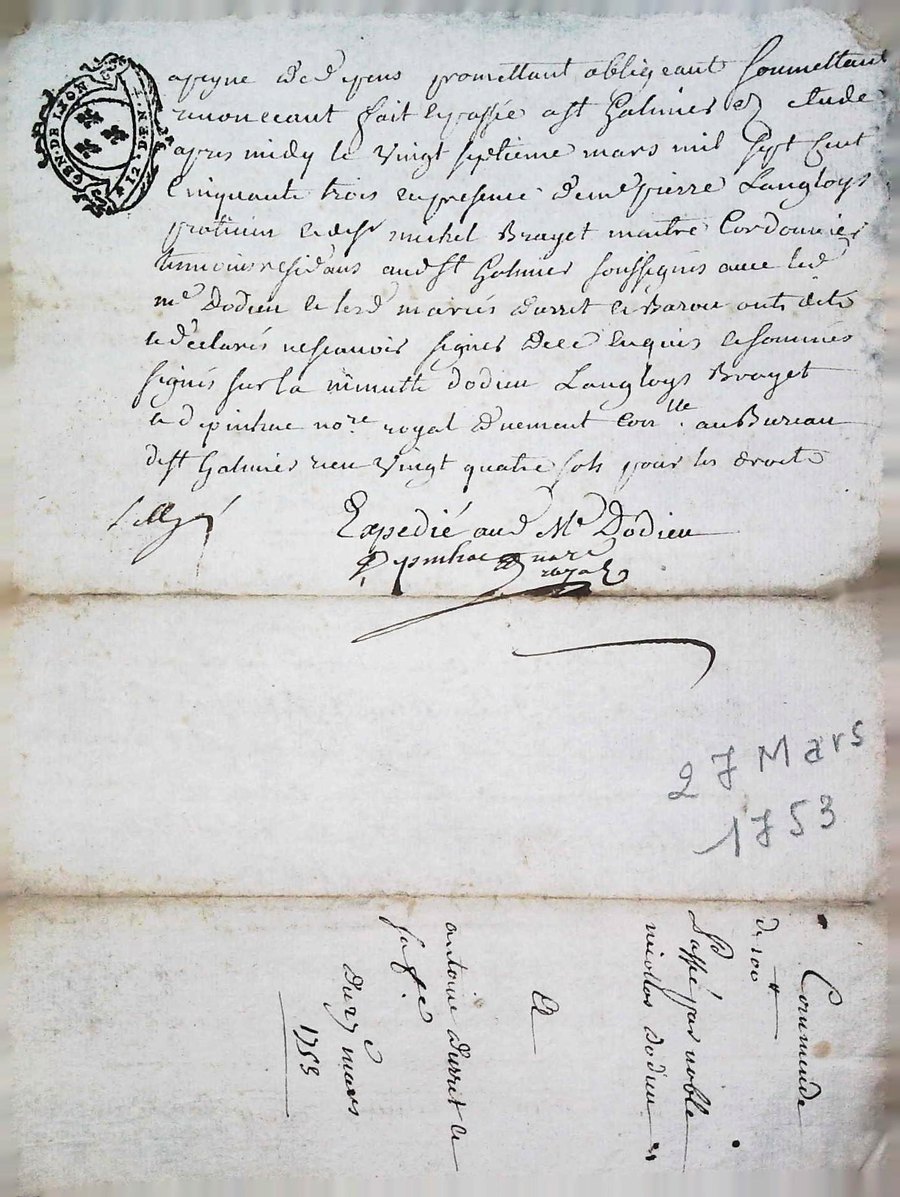 GEN. DE LYON
12. DEN.
apeyne de depens promettant obligeant soumettant
renonceant fait et passée a St Galmier estude
apres midy le vingt septieme mars mil sept cent
Cinquante trois en presence de me pierre Langloys
praticien et de sr michel Brayet maitre Cordonnier
temoins residans aud St Galmier soussignés avec led
me Dodieu et lesd mariés durret et Barou onts dits
et déclarés ne scavoir signer de ce enquis et sommés
signés sur la minutte dodieu Langloys Brayet
et depinhac nore royal duement Conlle. au Bureau
de St Galmier reçu vingt quatre sols pour les droits
Expedié aud Me Dodieu
Depinhac nore
royal
27 Mars
1753
Commande
de 100 #
Passé par noble
nicollas dodieu
A
antoine durret et
sa fe
Du 27e mars
1753